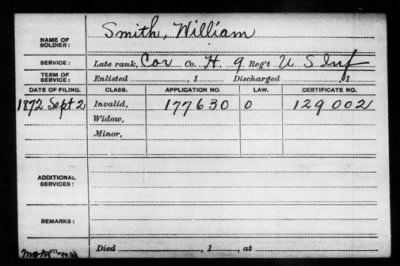 NAME OF SOLDIER: Smith, William
SERVICE: Late rank, Cor Co. H, 9 Reg't U S Inf
TERM OF SERVICE: Enlisted , 1 Discharged , 1
DATE OF FILING. CLASS. APPLICATION NO. LAW. CERTIFICATE NO.
1872 Sept 2 Invalid, 177630 O 129002
Widow,
Minor,
ADDITIONAL SERVICES:
REMARKS:
Died , 1 , at